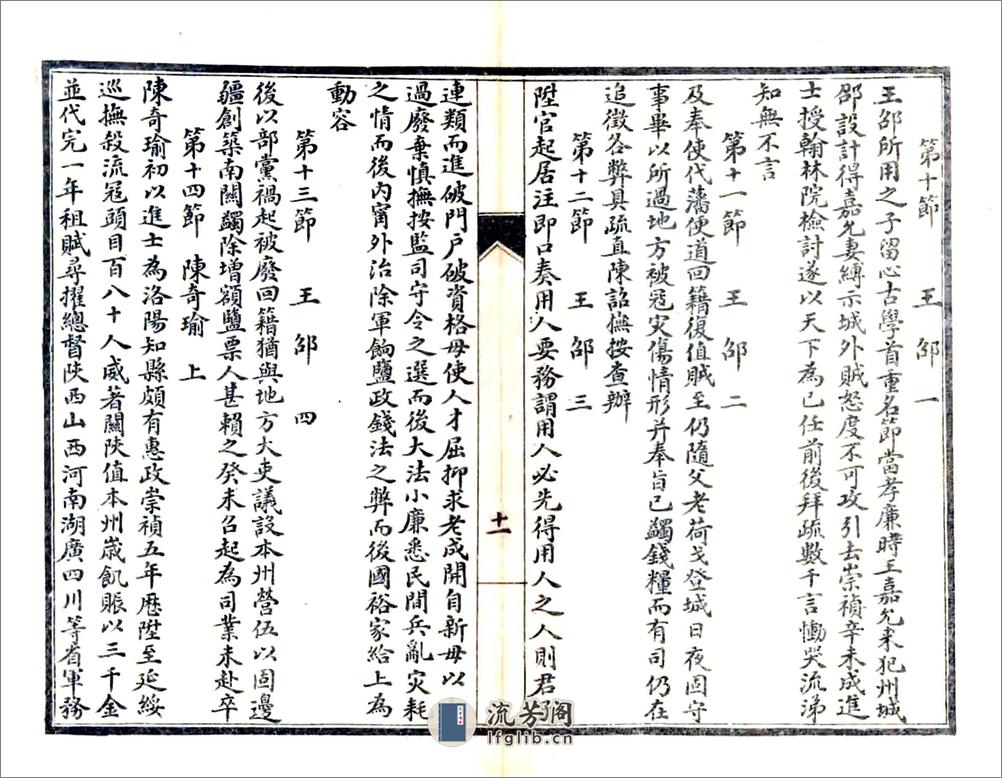 第十節　王邵　一
王邵所用之子留心古學首重名節當孝廉時王嘉允来犯州城
邵設計得嘉允妻縛示城外賊怒度不可攻引去崇禎辛未成進
士授翰林院檢討遂以天下為己任前後拜疏數千言慟哭流涕
知無不言
第十一節　王邵　二
及奉使代藩便道回籍復值賊至仍隨父老荷戈登城日夜固守
事畢以所過地方被冦災傷情形并奉旨已蠲錢糧而有司仍在
追徵各弊具疏直陳詔撫按查辦
第十二節　王邵　三
陞官起居注即口奏用人要務謂用人必先得用人之人則君
十一
連類而進破門户破資格毋使人才屈抑求老成開自新毋以
過廢棄慎撫按監司守令之選而後大法小廉悉民間兵亂灾耗
之情而後内甯外治除軍餉鹽政錢法之弊而後國裕家給上為
動容
第十三節　王邵　四
後以部黨禍起被廢回籍猶與地方大吏議設本州營伍以固邊
疆創築南關蠲除增額鹽票人甚賴之癸未召起為司業未赴卒
第十四節　陳奇瑜　上
陳奇瑜初以進士為洛陽知縣頗有惠政崇禎五年歷陞至延綏
巡撫殺流冦頭目百八十人威著關陝值本州歲飢賑以三千金
並代完一年租賦尋擢總督陝西山西河南湖廣四川等省軍務
流芳阁
lfglib.cn